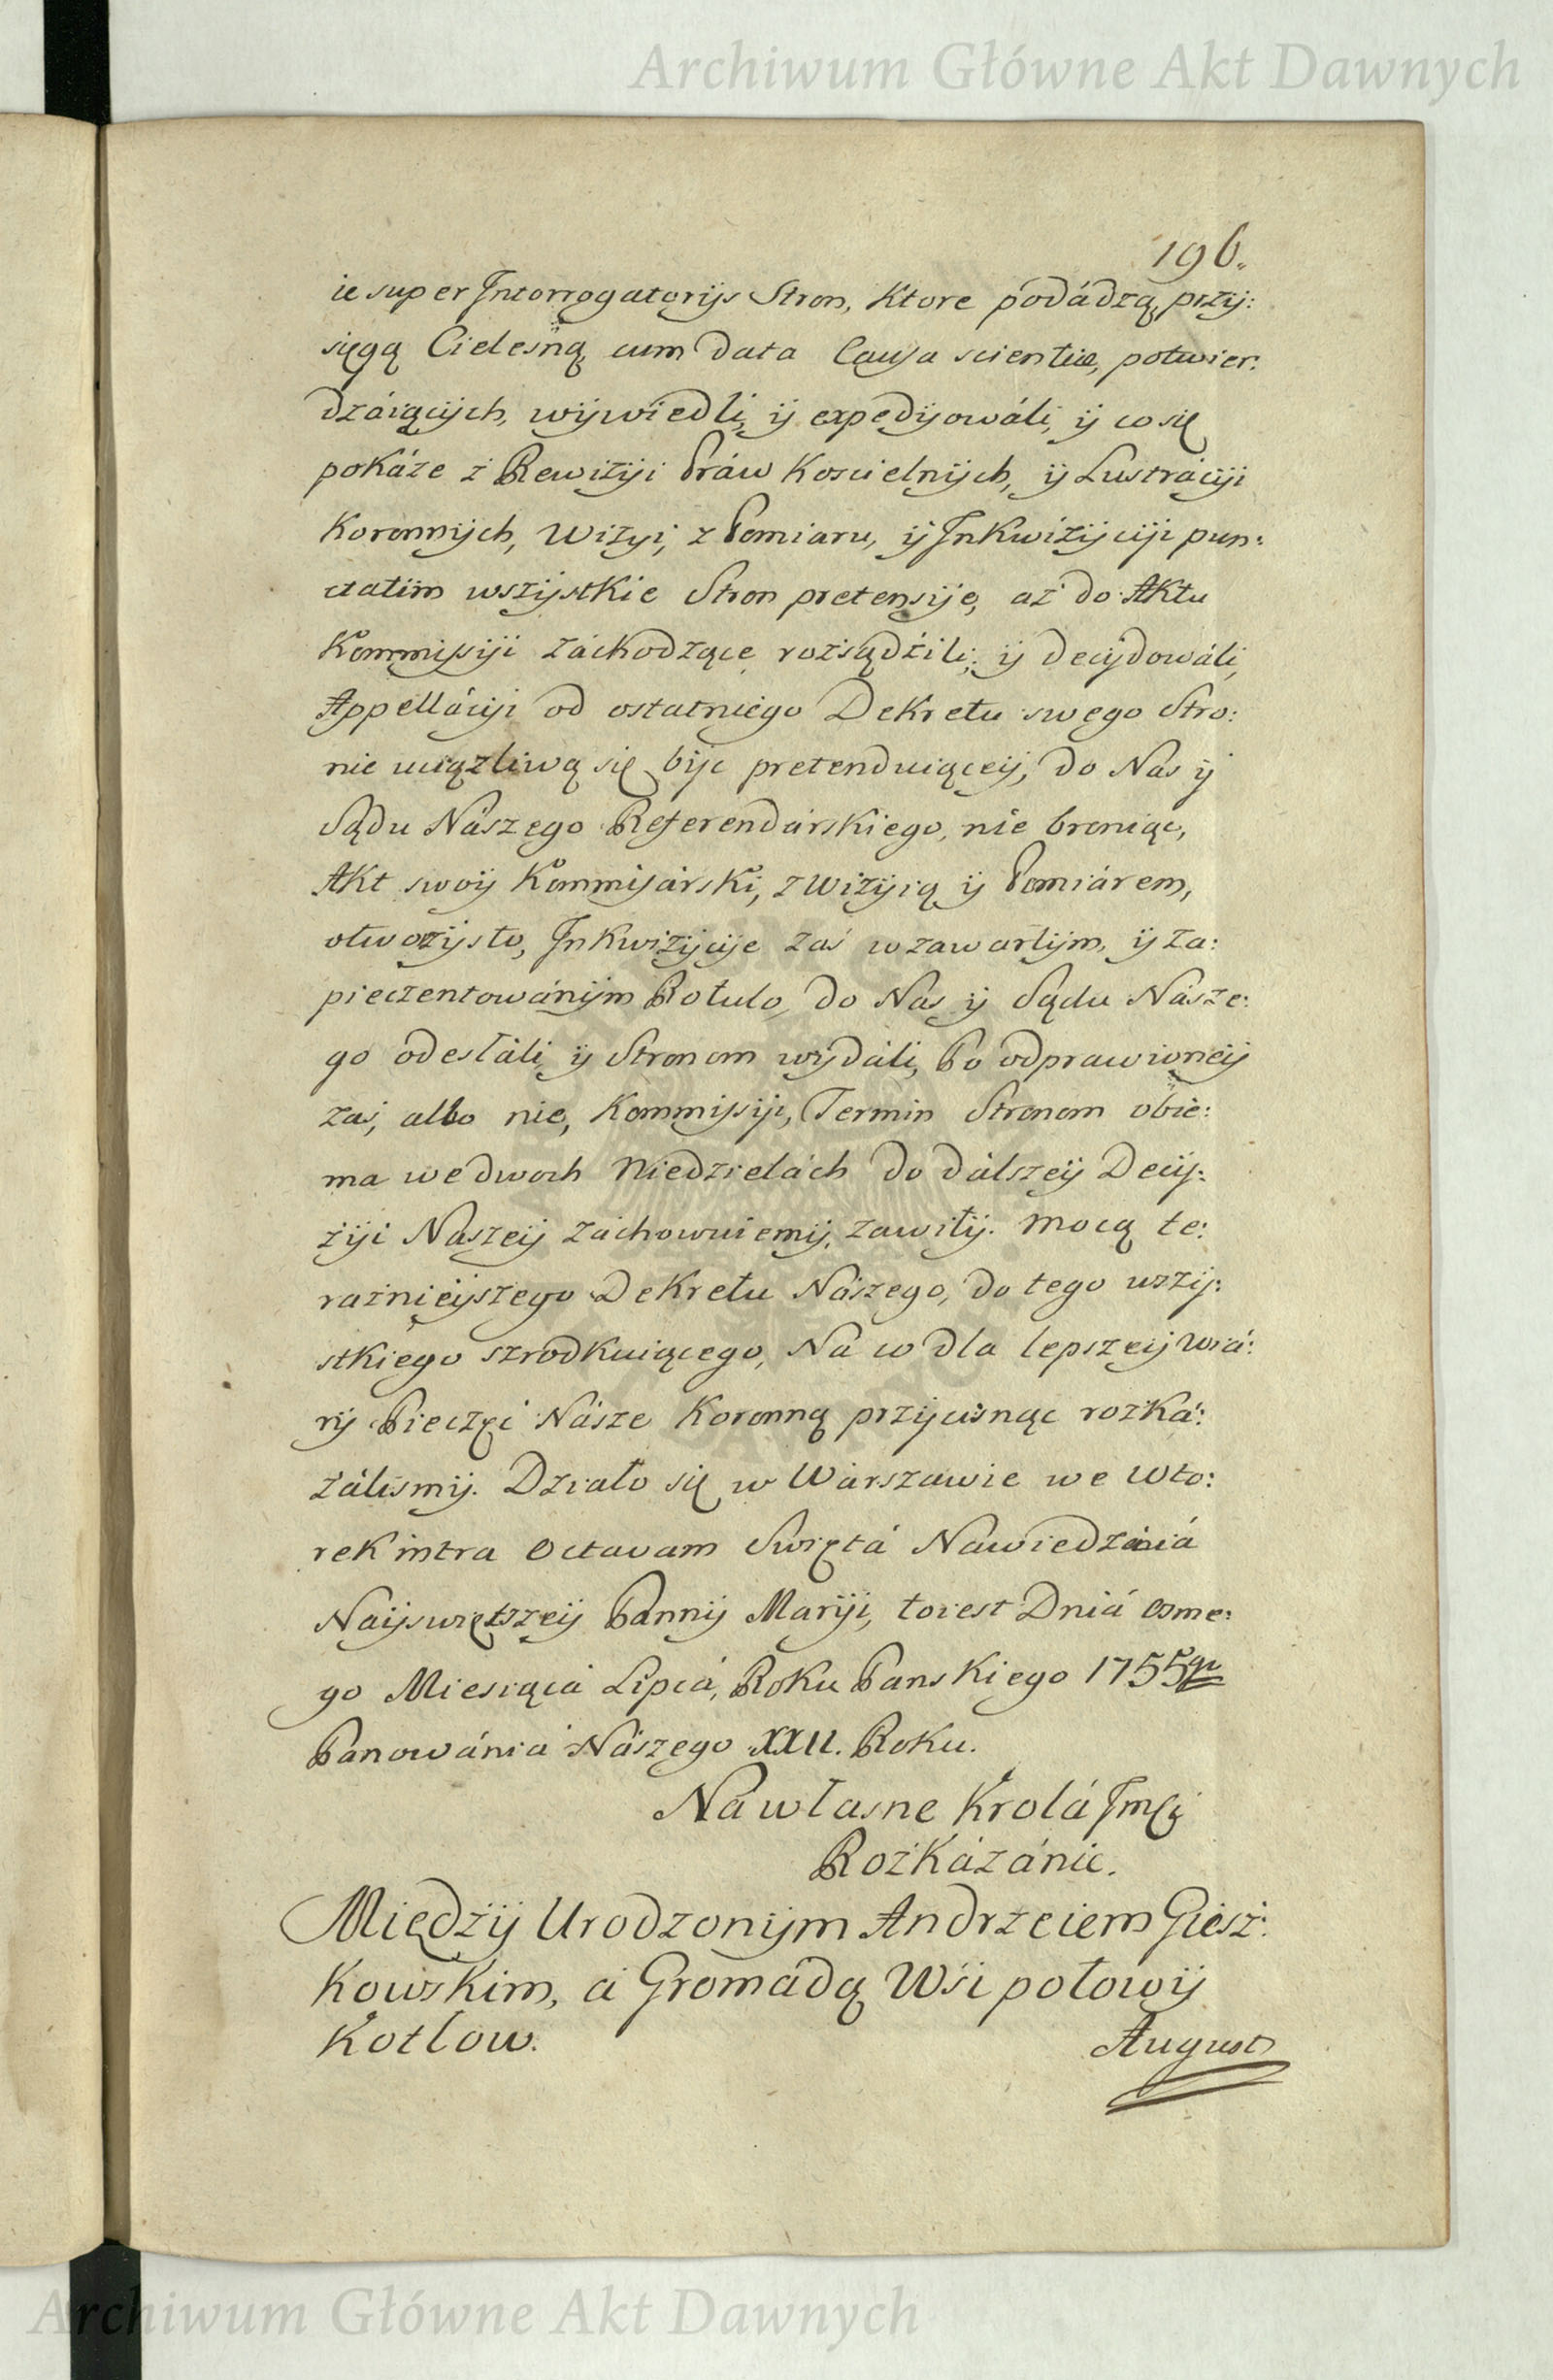 Archiwum Główne Akt Dawnych
196.
ie super Interrogatorijs Stron, Ktore podádzą, przy:
sięgą Cielesną, cum data Causa scientiæ, potwier:
dzáiącÿch, wÿwiedli, ÿ expedÿowáli, ÿ co się
pokáze z Rewizÿi Práw Koscielnÿch, ÿ Lustráciÿi
Koronnÿch, Wizyi, z Pomiaru, ÿ Inkwizÿciÿi pun:
ctatim wszÿstkie Stron pretensÿe, aż do Aktu
Kommissÿi záchodzące rozsądźili, ÿ decÿdowáli,
Appelláciÿi od ostatniego Dekretu swego Stro:
nie uciązliwą się bÿc pretenduiąceÿ, do Nas ÿ
Sądu Nászego Referendarskiego, nie broniąc,
Akt swoÿ Kommisárski, z Wizÿią ÿ Pomiárem,
otworzÿsto, Inkwizÿcÿe zaś w zawartÿm, ÿ za:
pieczentowánÿm Rotulo, do Nas ÿ Sądu Násze:
go odesłáli, ÿ Stronom wÿdáli, Po odprawioneÿ
zaś, albo nie, Kommissÿi, Termin Stronom obie:
ma we dwoch Niedzielách do dálszeÿ Decÿ:
zÿi Naszeÿ záchowuiemÿ, zawitÿ. Mocą te:
raznieÿszego Dekretu Nászego, do tego wszÿ:
stkiego szrodkuiącego, Na co dla lepszeÿ wiá:
rÿ Pieczęć Násze Koronną przÿcisnąc rozká:
zálismÿ. Działo się w Wárszawie we Wto:
rek intra Octavam Swiętá Nawiedzániá
Naÿswiętszeÿ Pannÿ Marÿi, to iest Dniá osme:
go Miesiącá Lipcá, Roku Panskiego 1755go
Panowániá Nászego XXII. Roku.
Ná własne Krolá Jmći
Rozkázánie.
Międzÿ Urodzonÿm Andrzeiem Giesz:
kowskim, á Gromádą Wsi połowÿ
Kotlow.
August
Archiwum Główne Akt Dawnych